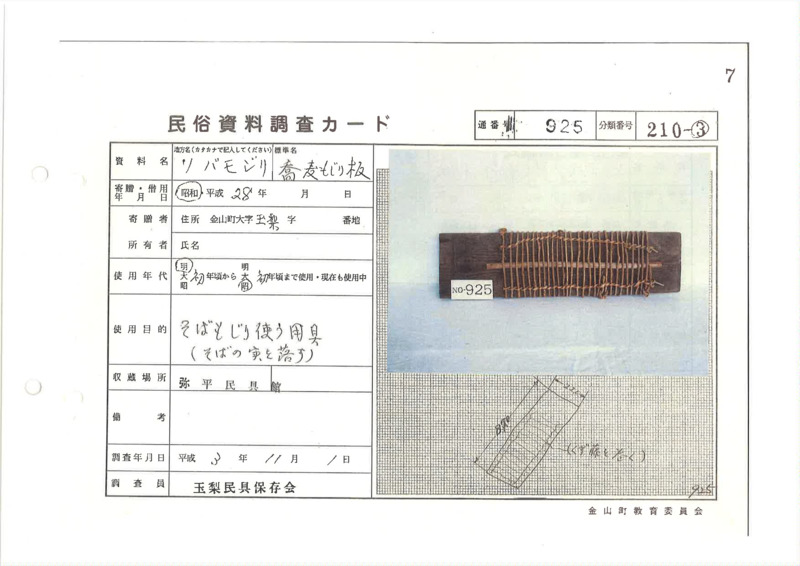 7
民俗資料調査カード
通番号 925 分類番号 210-③
資料名 地方名(カタカナで記入してください) 標準名
ソバモジリ 蕎麦もじり板
寄贈・借用年月日 昭和 平成 28年 月 日
寄贈者 住所 金山町大字玉梨字 番地
所有者 氏名
使用年代 明大昭 初年頃から 明大昭 初年頃まで使用・現在も使用中
使用目的 そばもじり使う用具
(そばの実を落す)
収蔵場所 弥平民具館
備考
調査年月日 平成 3年 11月 1日
調査員 玉梨民具保存会
NO.925
(くず藤をまく)
925
金山町教育委員会